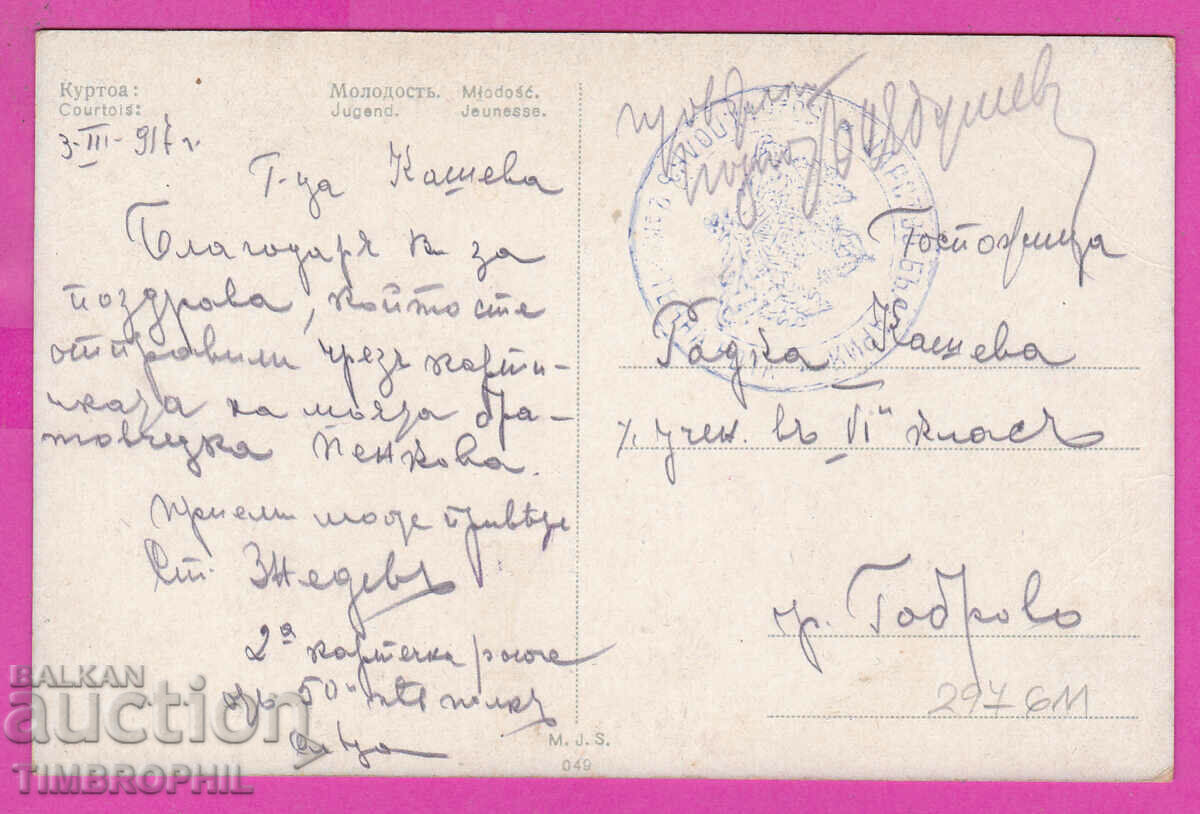 Куртоа: Молодость. Młodość.
Courtois: Jugend. Jeunesse.
3-III-917 г.
Г-ца Кашева
Благодаря Ви за
поздрава, който сте
отправили чрезъ карти-
чката на моята бра-
товчедка Пенкова.
Приеми моте привѣтъ
Ст. Жедевъ
2а картечна рота
отъ 50й пѣш. полкъ
Госпожица
Радка Кашева
уч. въ VIй класъ
гр. Габрово
297 6М
M. J. S.
049
BALKAN
auction
TIMBROPHIL